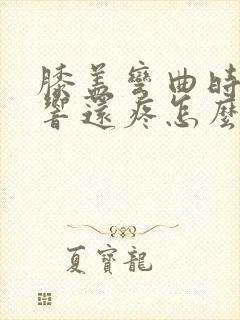 膝盖彎曲時
響還疼怎麼
夏寶龍